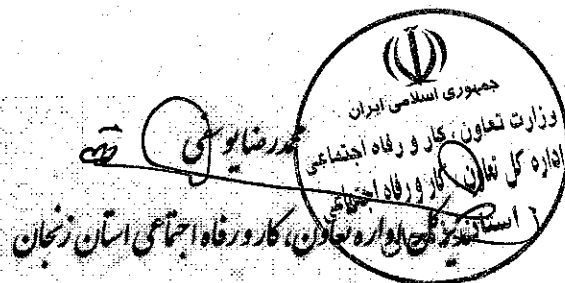 جمهوری اسلامی ایران
وزارت تعاون، کار و رفاه اجتماعی
اداره کل تعاون کار و رفاه اجتماعی
استان
محمدرضا یوسفی
مدیرکل اداره تعاون، کار و رفاه اجتماعی استان زنجان